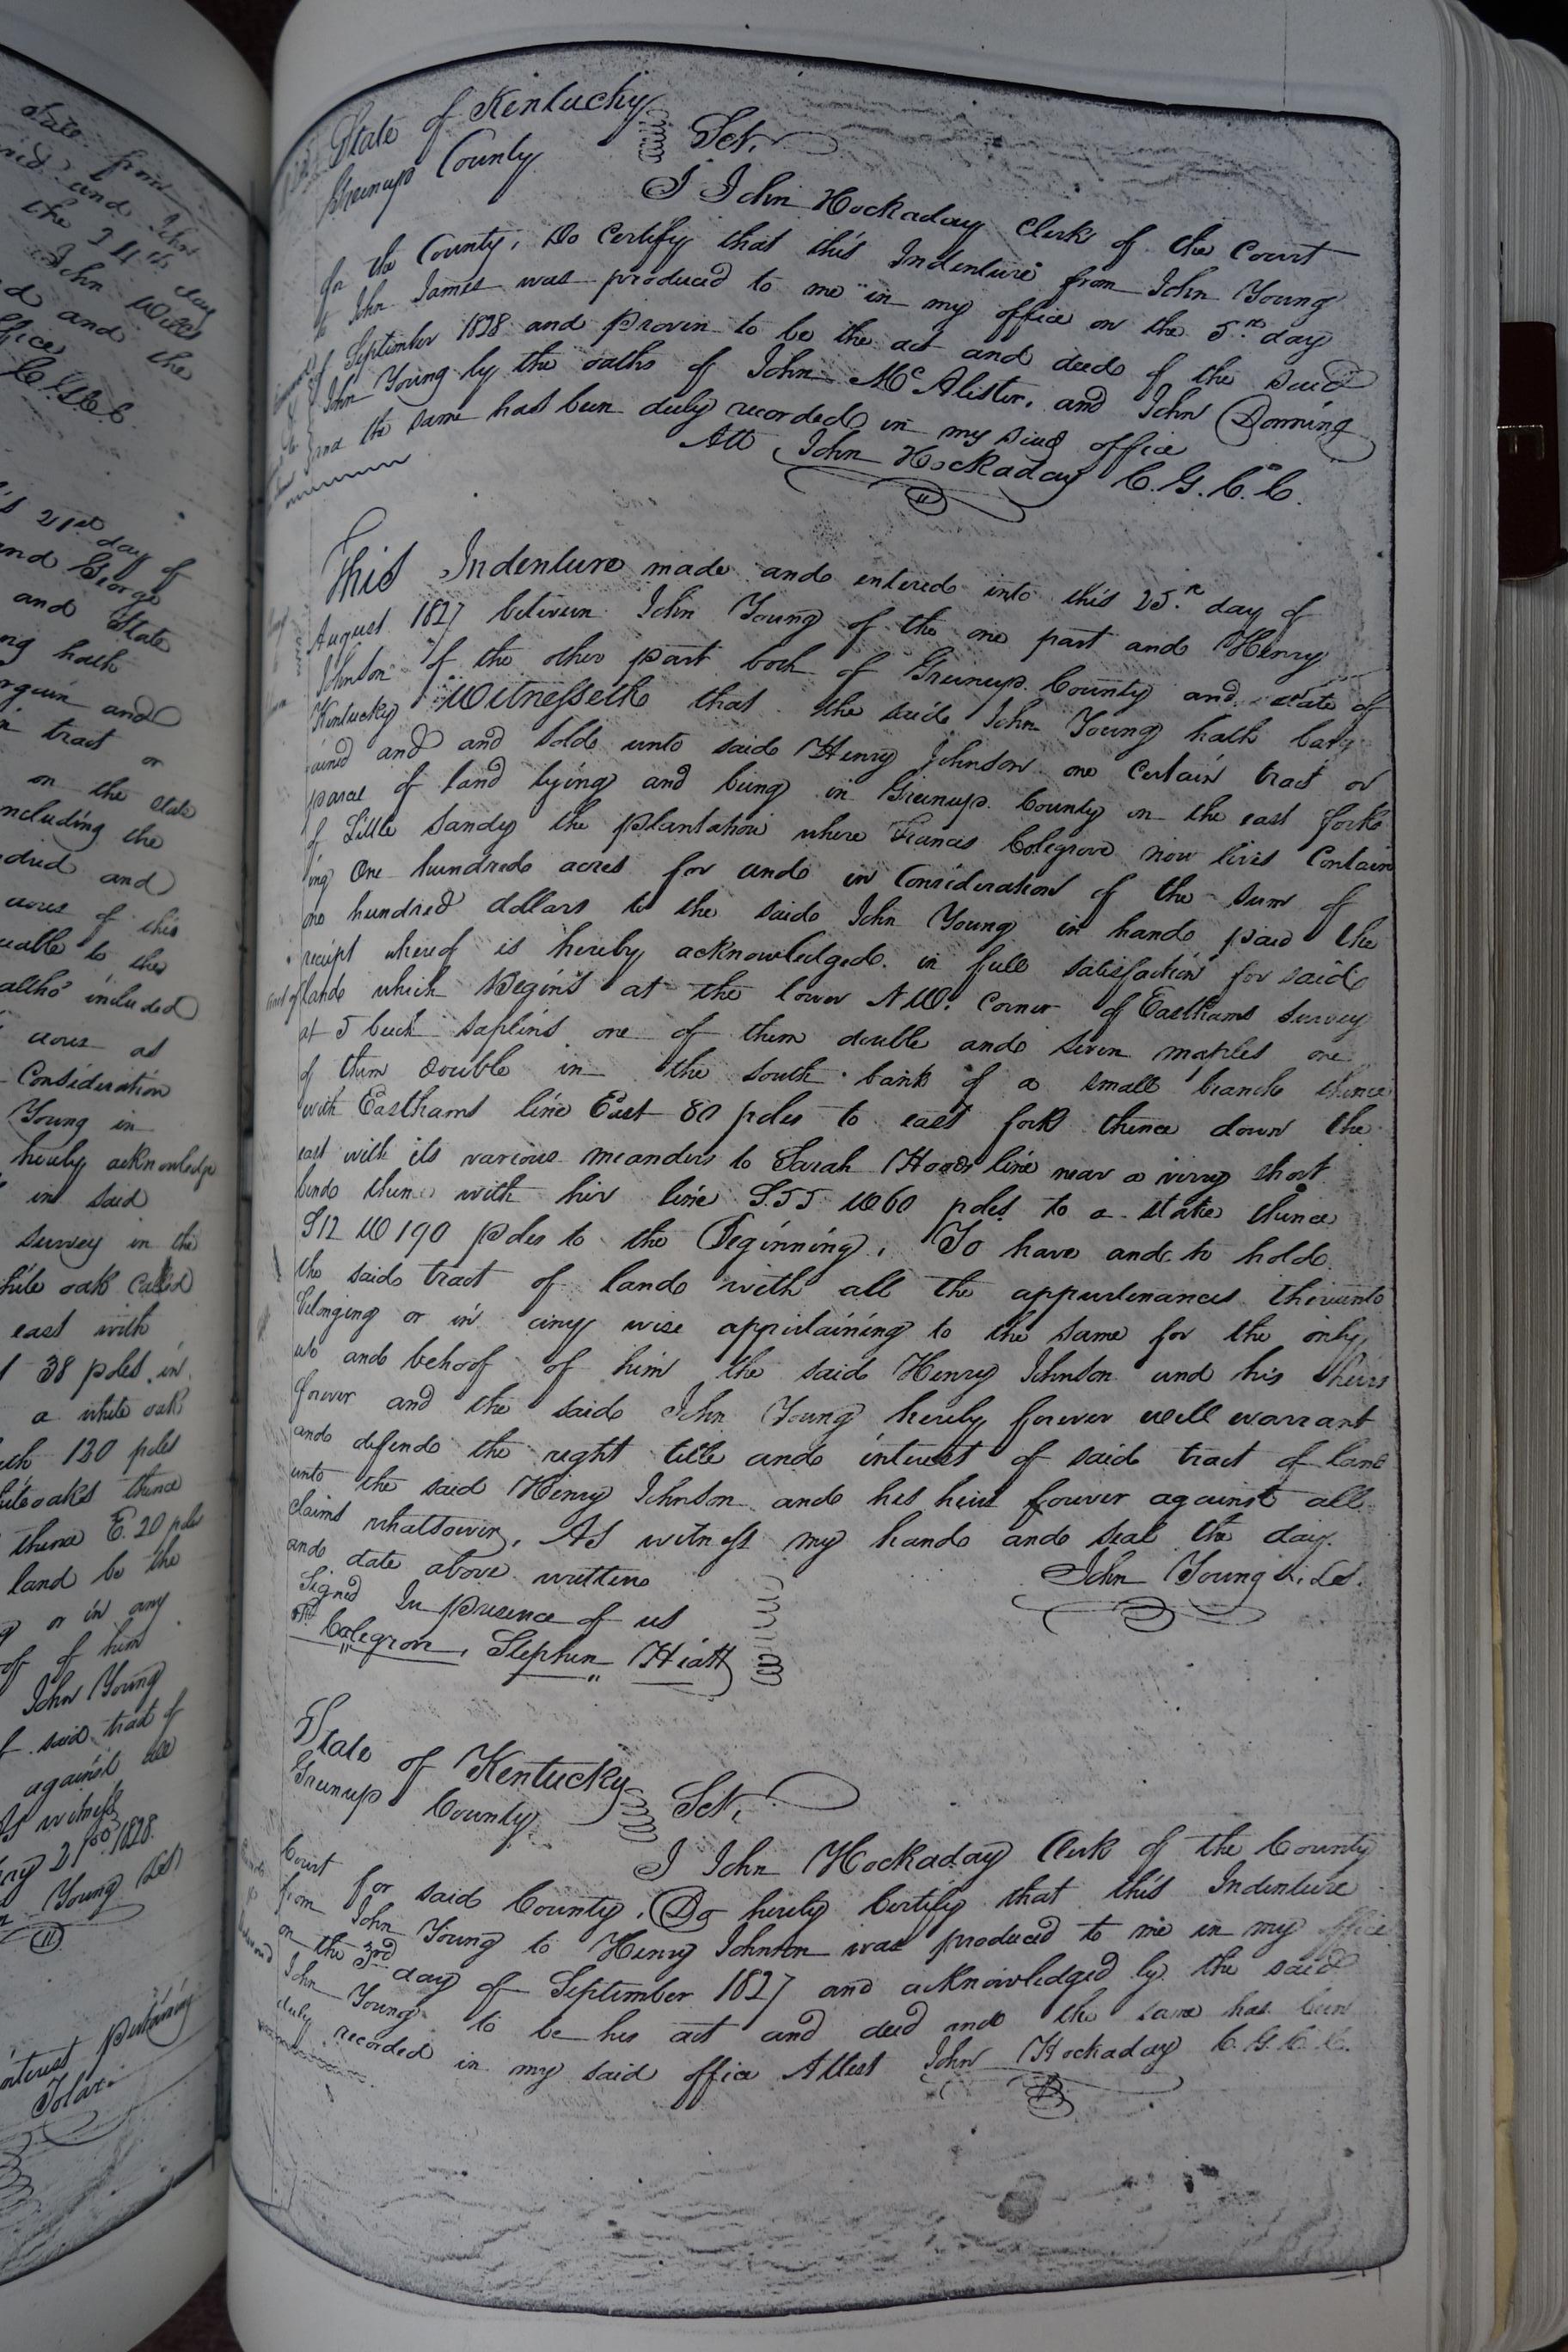 State of Kentucky
Greenup County Sct.
I John Hockaday Clerk of the Court
for the County, Do Certify that this Indenture from John Young
to John James was produced to me in my office on the 5th day
of September 1828 and Proven to be the act and deed of the said
John Young by the oaths of John McAlister, and John Downing
and the same has been duly recorded in my said office
Att John Hockaday C.G.C.C.
This Indenture made and entered into this 25th day of
August 1827 between John Young of the one part and Henry
Johnson of the other part both of Greenup County and state of
Kentucky Witnesseth that the said John Young hath barg
ained and and sold unto said Henry Johnson one certain tract or
parcel of land lying and being in Greenup County on the east fork
of Little Sandy the plantation where Frances Colegrove now lives Contain
ing One hundred acres for and in Consideration of the sum of
one hundred dollars to the said John Young in hand paid the
receipt whereof is hereby acknowledged in full satisfaction for said
tract of land which Begins at the lower N.W. corner of Easthams survey
at 5 buch saplins one of them double and seven maples one
of them double in the south bank of a small branch thence
with Easthams line East 80 poles to east fork thence down the
east with its various meanders to Sarah Hoods line near a very short
bend thence with her line S.55 W60 poles to a stake thence
S12 W190 Poles to the Beginning, To have and to hold
the said tract of land with all the appurtenances thereunto
belonging or in any wise appertaining to the same for the only
use and behoof of him the said Henry Johnson and his heirs
forever and the said John Young hereby forever will warrant
and defend the right title and interest of said tract of land
unto the said Henry Johnson and his heirs forever against all
claims whatsoever, As witness my hand and seal the day
and date above written
John Young
Signed In presence of us
Colegrove, Stephen Hiatt
State of Kentucky
Greenup County Sct,
I John Hockaday Clerk of the County
Court for said County, Do hereby Certify that this Indenture
from John Young to Henry Johnson was produced to me in my office
on the 3rd day of September 1827 and acknowledged by the said
John Young to be his act and deed and the same has been
duly recorded in my said office Attest John Hockaday C.G.C.C.
state from
and John
the 24th day
John Wills
d and the
office
C.G.C.C.
21st day of
and George
and State
ng hath
argain and
n tract or
on the state
including the
ndred and
acres of this
uable to the
altho' included
acres as
Consideration
Young in
hereby acknowledge
in said
survey in the
white oak called
east with
38 poles in
a white oak
120 poles
white oaks thence
thence E. 20 poles
land be the
or in any
of of him
John Young
of said tract of
against all
As witness
21st 1828
Young
interest